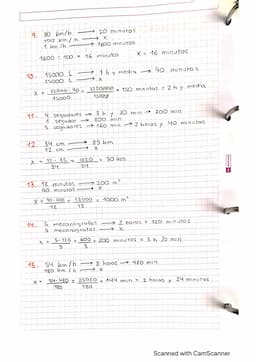 9. 80 km/h → 20 minutos
100 km/h → x
1 km/h → 1600 minutos
1600 : 100 = 16 minutos x = 16 minutos
10. 15000 L → 1 h y media → 90 minutos
25000 L → x
x = 25000·90 / 15000 = 2250000 / 15000 = 150 minutos = 2 h y media
11. 4 segadores → 3 h y 20 min → 200 min
1 segador → 800 min
5 segadores → 160 min → 2 horas y 40 minutos
12. 34 cm → 85 km
12 cm → x
x = 12·85 / 34 = 1020 / 34 = 30 km
13. 18 minutos → 200 m²
90 minutos → x
x = 1000 m²
14. 5 mecanógrafas → 2 horas = 120 minutos
3 mecanógrafas → x
x = 5·120 / 3 = 600 / 3 = 200 minutos = 3 h 20 min
15. 54 km/h → 8 horas → 480 min
180 km/h → x
x = 54·480 / 180 = 25920 / 180 = 144 min = 2 horas y 24 minutos
Scanned with CamScanner